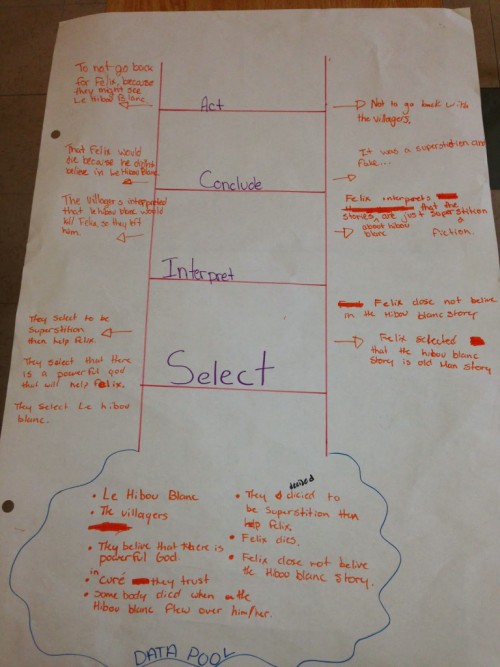 To not go back
for Felix, because
they might see
Le Hibou Blanc.
Act
Not to go back with
the villagers.
That Felix would
die because he didn't
believe in Le Hibou Blanc
Conclude
It was a superstition and
fake...
The Villagers interpreted
that le hibou blanc would
kill Felix, so they left
him.
Interpret
Felix interprets
that the
stories, are just superstition
about hibou a
blanc fiction.
They select to be
Superstition
then help Felix.
They select that there
is a powerful god
that will help Felix.
They select Le hibou
blanc.
Select
Felix dose not belive
in the Hibou blanc story
Felix selected
that the hibou blanc
story is old Man story
• Le Hibou Blanc
• The villagers
• They belive that there is
powerful God.
in
• Curé they trust
• some body died when the
Hibou blanc flew over him/her.
decided
• They dicied to
be Superstition then
help Felix.
• Felix dies.
• Felix dose not belive
the Hibou blanc story.
DATA POOL